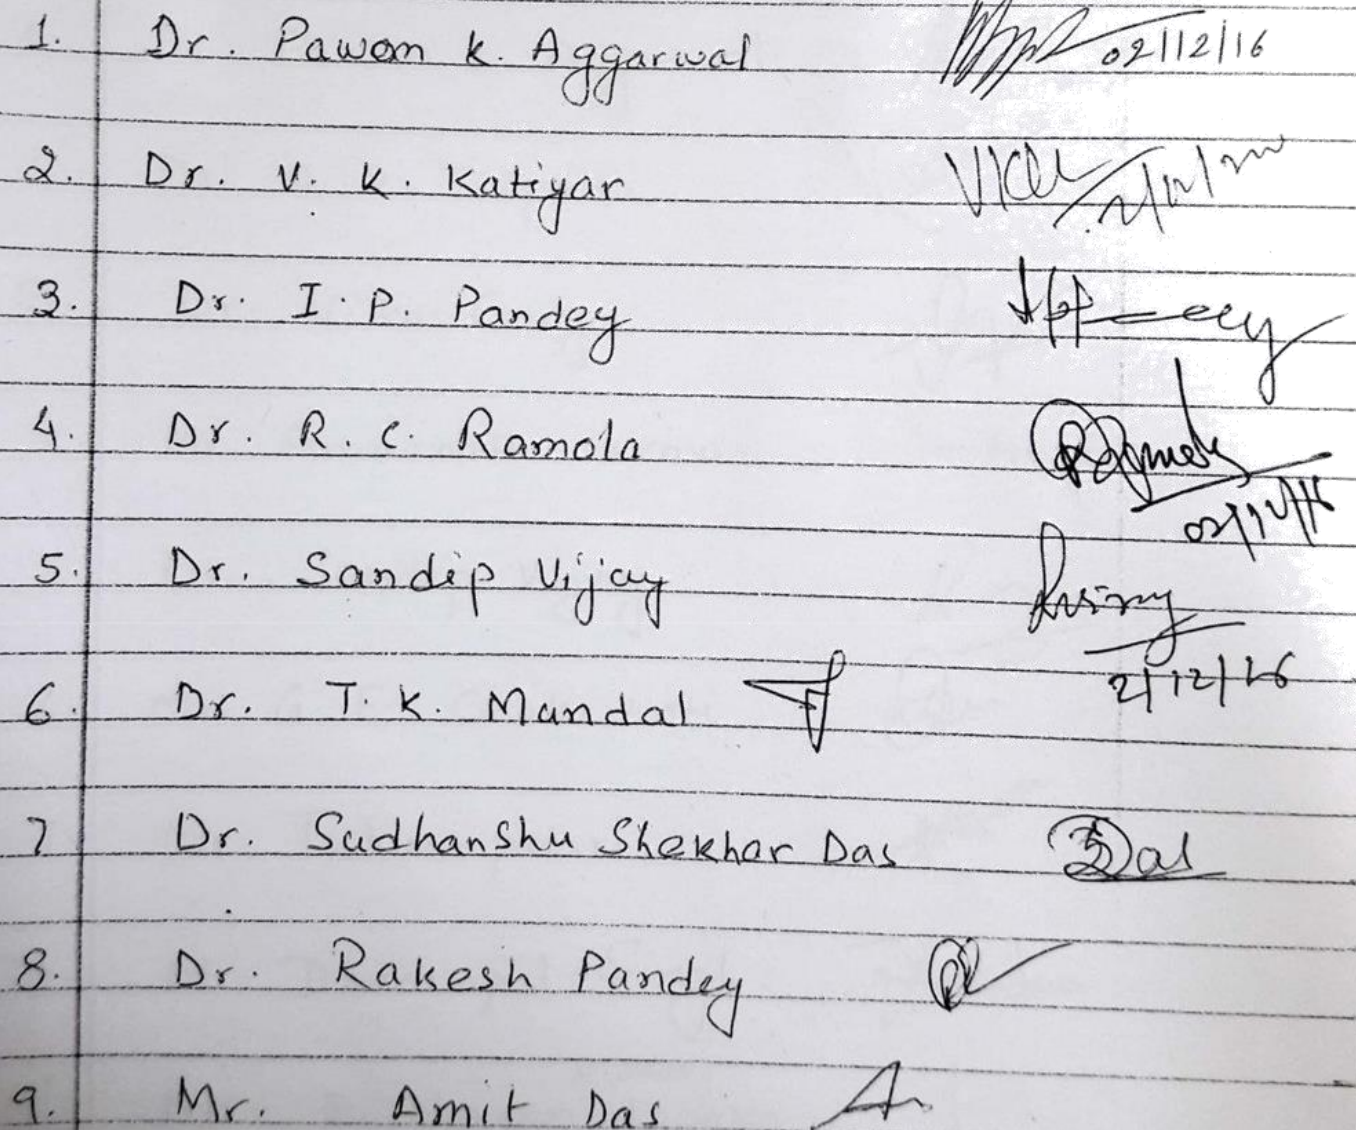 1. Dr. Pawan K. Aggarwal 02/12/16
2. Dr. V. K. Katiyar
3. Dr. I. P. Pandey
4. Dr. R. C. Ramola
02/12/16
5. Dr. Sandip Vijay
2/12/16
6. Dr. T. K. Mandal
7 Dr. Sudhanshu Shekhar Das Das
8. Dr. Rakesh Pandey
9. Mr. Amit Das